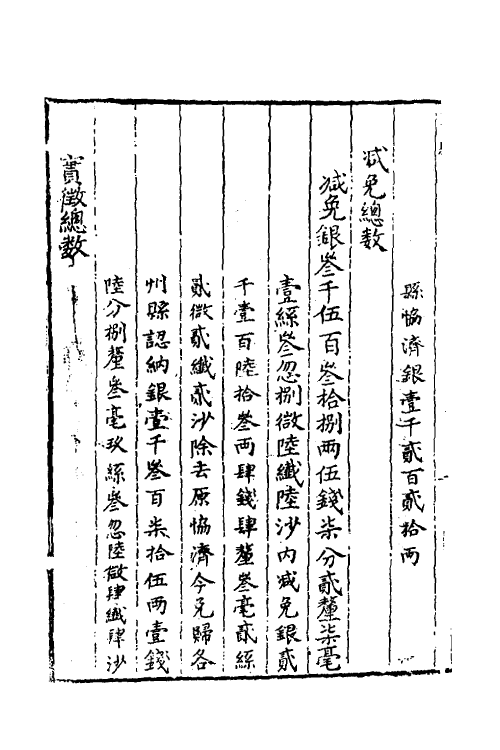 縣協濟銀壹千貳百貳拾兩
減免總數
減免銀叄千伍百叄拾捌兩伍錢柒分貳釐柒毫
壹絲叄忽捌微陸纖陸沙內減免銀貳
千壹百陸拾叄兩肆錢肆釐叄毫貳絲
貳微貳纖貳沙除去原協濟今免歸各
州縣認納銀壹千叄百柒拾伍兩壹錢
陸分捌釐叄毫玖絲叄忽陸微肆纖肆沙
實徵總數